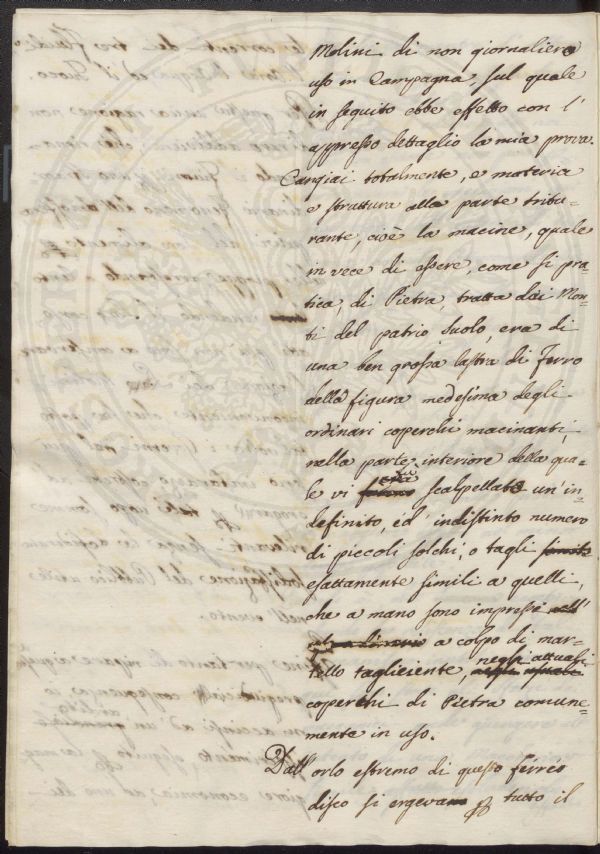 Molini di non giornaliero
uso in Campagna, sul quale
in seguito ebbe effetto con l'
appresso dettaglio la mia prova.
Cangiai totalmente, e materia
e struttura alla parte tritu-
rante, cioè la macine, quale
in vece di essere, come si pra-
tica, di Pietra, tratta dai Mon-
ti del patrio suolo, era di
una ben grossa lastra di Ferro
della figura medesima degli
ordinari coperchi macinanti,
nella parte interiore della qua-
le vi scalpellato un'in-
definito, ed' indistinto numero
di piccoli solchi, o tagli
esattamente simili a quelli,
che a mano sono impressi
a colpo di mar-
tello tagliciente, negli attuali
coperchi di Pietra comune-
mente in uso.
Dall' orlo estremo di questo ferreo
disco si ergeva tutto il